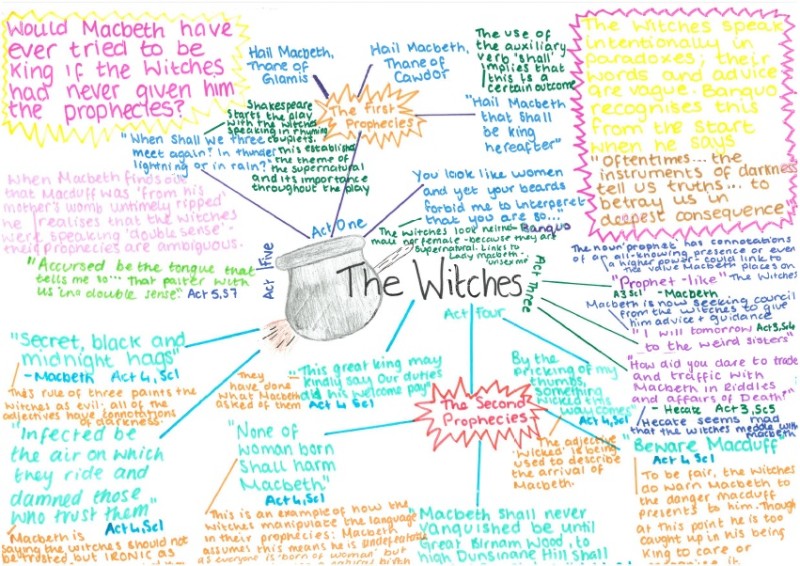 Would Macbeth have
ever tried to be
king if the Witches
had never given him
the prophecies?
Hail Macbeth,
Thane of
Glamis
Hail Macbeth,
Thane of
Cawdor
The use of
the auxiliary
verb 'shall'
implies that
this is a
certain outcome
The Witches speak
intentionally in
paradoxes; their
words and advice
are vague. Banquo
recognises this
from the start
when he says
"Oftentimes... the
instruments of darkness
tell us truths... to
betray us in
deepest consequence"
The First
Prophecies
"Hail Macbeth
that shall
be king
hereafter"
Shakespeare
starts the play
with the witches
speaking in rhyming
couplets.
This establishes
the theme of
the supernatural
and its importance
throughout the play
"When shall we three
meet again? In thunder,
lightning or in rain?"
You look like women
and yet your beards
forbid me to interpret
that you are so..."
- Banquo
The witches look neither
male nor female - because they are
supernatural. Links to
Lady Macbeth
'unsex me'
When Macbeth finds out
that Macduff was 'from his
mother's womb untimely ripped'
he realises that the witches
were speaking 'double sense' -
their prophecies are ambiguous.
"Accursed be the tongue that
tells me so... That palter with
us in a double sense" Act 5, S7
Act One
Act Five
The Witches
Act Three
Act Four
The noun 'prophet' has connotations
of an all-knowing presence or even
a higher power - could link to
the value Macbeth places on
The Witches
"Prophet-like"
A3 Sc1 - Macbeth
Macbeth is now seeking council
from the witches to give
him advice + guidance
"I will tomorrow Act 3, Sc4
to the weird sisters"
"How did you dare to trade
and traffic with
Macbeth in Riddles
and affairs of Death?"
- Hecate Act 3, Sc5
Hecate seems mad
that the witches meddle with
Macbeth
"Secret, black and
midnight hags"
- Macbeth Act 4, Sc1
This rule of three paints the
witches as evil; all of the
adjectives have connotations
of darkness.
They
have done
what Macbeth
asked of them
"This great king may
kindly say our duties
did his welcome pay"
Act 4 Sc1
By the
pricking of my
thumbs,
something
wicked this
way comes"
Act 4, Sc1
The adjective
'wicked' is being
used to describe
the arrival of
Macbeth
The Second
Prophecies
"Infected be
the air on which
they ride and
damned those
who trust them"
Act 4, Sc1
Macbeth is
saying the witches should not
be trusted, but IRONIC as
"None of
woman born
shall harm
Macbeth"
Act 4, Sc1
This is an example of how the
witches manipulate the language
in their prophecies; Macbeth
assumes this means he is undefeatable
as everyone is 'born of woman' but
natural birth
Macbeth shall never
vanquished be until
Great Birnam Wood, to
high Dunsinane Hill shall
"Beware Macduff"
Act 4, Sc1
To be fair, the witches
do warn Macbeth to
the danger Macduff
presents to him. Though
at this point he is too
caught up in his being
King to care or